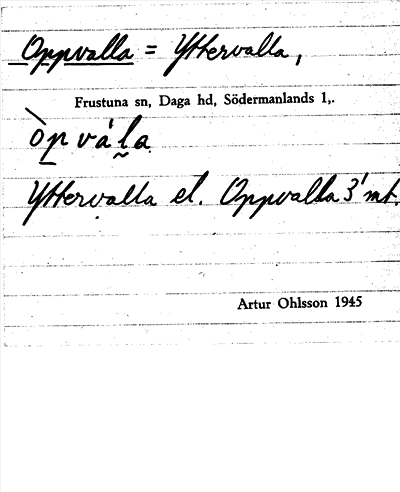 Oppvalla = Yttervalla,
Frustuna sn, Daga hd, Södermanlands l,.
òpvála
Yttervalla el. Oppvalla 3' mt.
Artur Ohlsson 1945